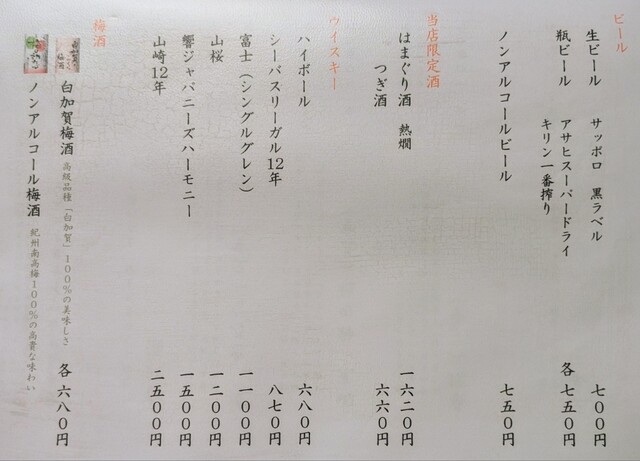 ビール
生ビール サッポロ 黒ラベル 七〇〇円
瓶ビール アサヒスーパードライ 各 七五〇円
キリン一番搾り
ノンアルコールビール 七五〇円
当店限定酒
はまぐり酒 熱燗 一六二〇円
つぎ酒 六六〇円
ウイスキー
ハイボール 六八〇円
シーバスリーガル12年 八七〇円
富士（シングルグレン） 一一〇〇円
山桜 一二〇〇円
響ジャパニーズハーモニー 一五〇〇円
山崎12年 二五〇〇円
梅酒
白加賀梅酒 高級品種「白加賀」100％の美味しさ 各 六八〇円
ノンアルコール梅酒 紀州南高梅100％の高貴な味わい